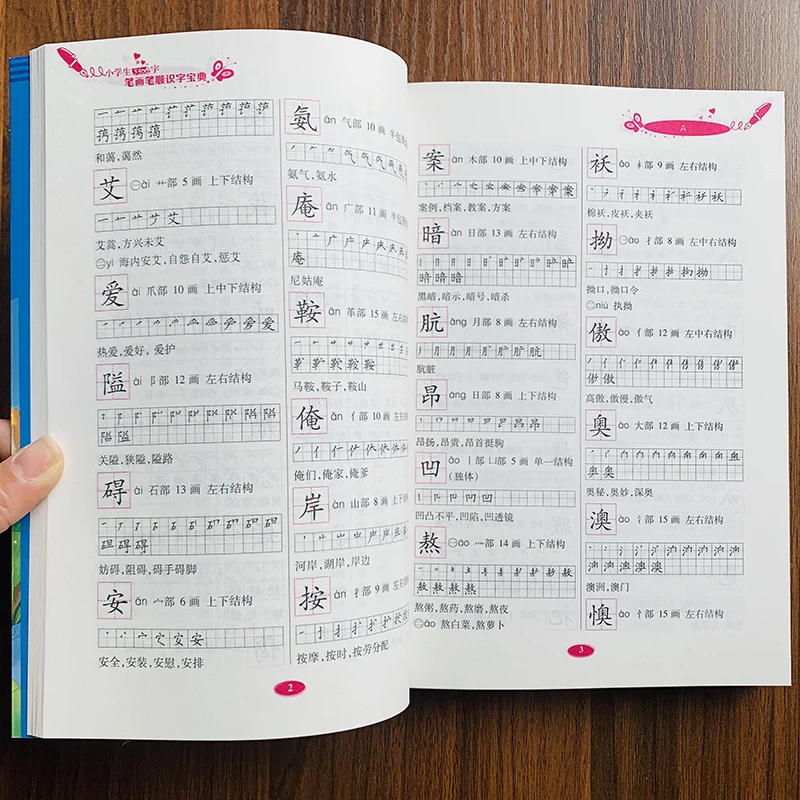 小学生
字
笔画笔顺识字宝典
和蔼,蔼然
艾 ㊀ài 艹部 5 画 上下结构
艾蒿,方兴未艾
㊁yì 海内安艾,自怨自艾,惩艾
爱 ài 爪部 10 画 上中下结构
热爱,爱好,爱护
隘 ài 阝部 12 画 左右结构
关隘,狭隘,隘路
碍 ài 石部 13 画 左右结构
妨碍,阻碍,碍手碍脚
安 ān 宀部 6 画 上下结构
安全,安装,安慰,安排
氨 ān 气部 10 画 半包
氨气,氨水
庵 ān 广部 11 画 半包
庵
尼姑庵
鞍 ān 革部 15 画 左右
马鞍,鞍子,鞍山
俺 ǎn 亻部 10 画 左右
俺们,俺家,俺爹
岸 àn 山部 8 画 上下
河岸,湖岸,岸边
按 àn 扌部 9 画 左右
按摩,按时,按劳分配
2
A
案 àn 木部 10 画 上中下结构
案例,档案,教案,方案
暗 àn 日部 13 画 左右结构
黑暗,暗示,暗号,暗杀
肮 āng 月部 8 画 左右结构
肮脏
昂 áng 日部 8 画 上下结构
昂扬,昂贵,昂首挺胸
凹 āo 丨部凵部 5 画 单一结构
(独体)
凹凸不平,凹陷,凹透镜
熬 ㊀áo 灬部 14 画 上下结构
熬粥,熬药,熬磨,熬夜
㊁āo 熬白菜,熬萝卜
袄 ǎo 衤部 9 画 左右结构
棉袄,皮袄,夹袄
拗 ㊀ào 扌部 8 画 左中右结构
拗口,拗口令
㊁niù 执拗
傲 ào 亻部 12 画 左中右结构
高傲,傲慢,傲气
奥 ào 大部 12 画 上下结构
奥秘,奥妙,深奥
澳 ào 氵部 15 画 左右结构
澳洲,澳门
懊 ào 忄部 15 画 左右结构
3